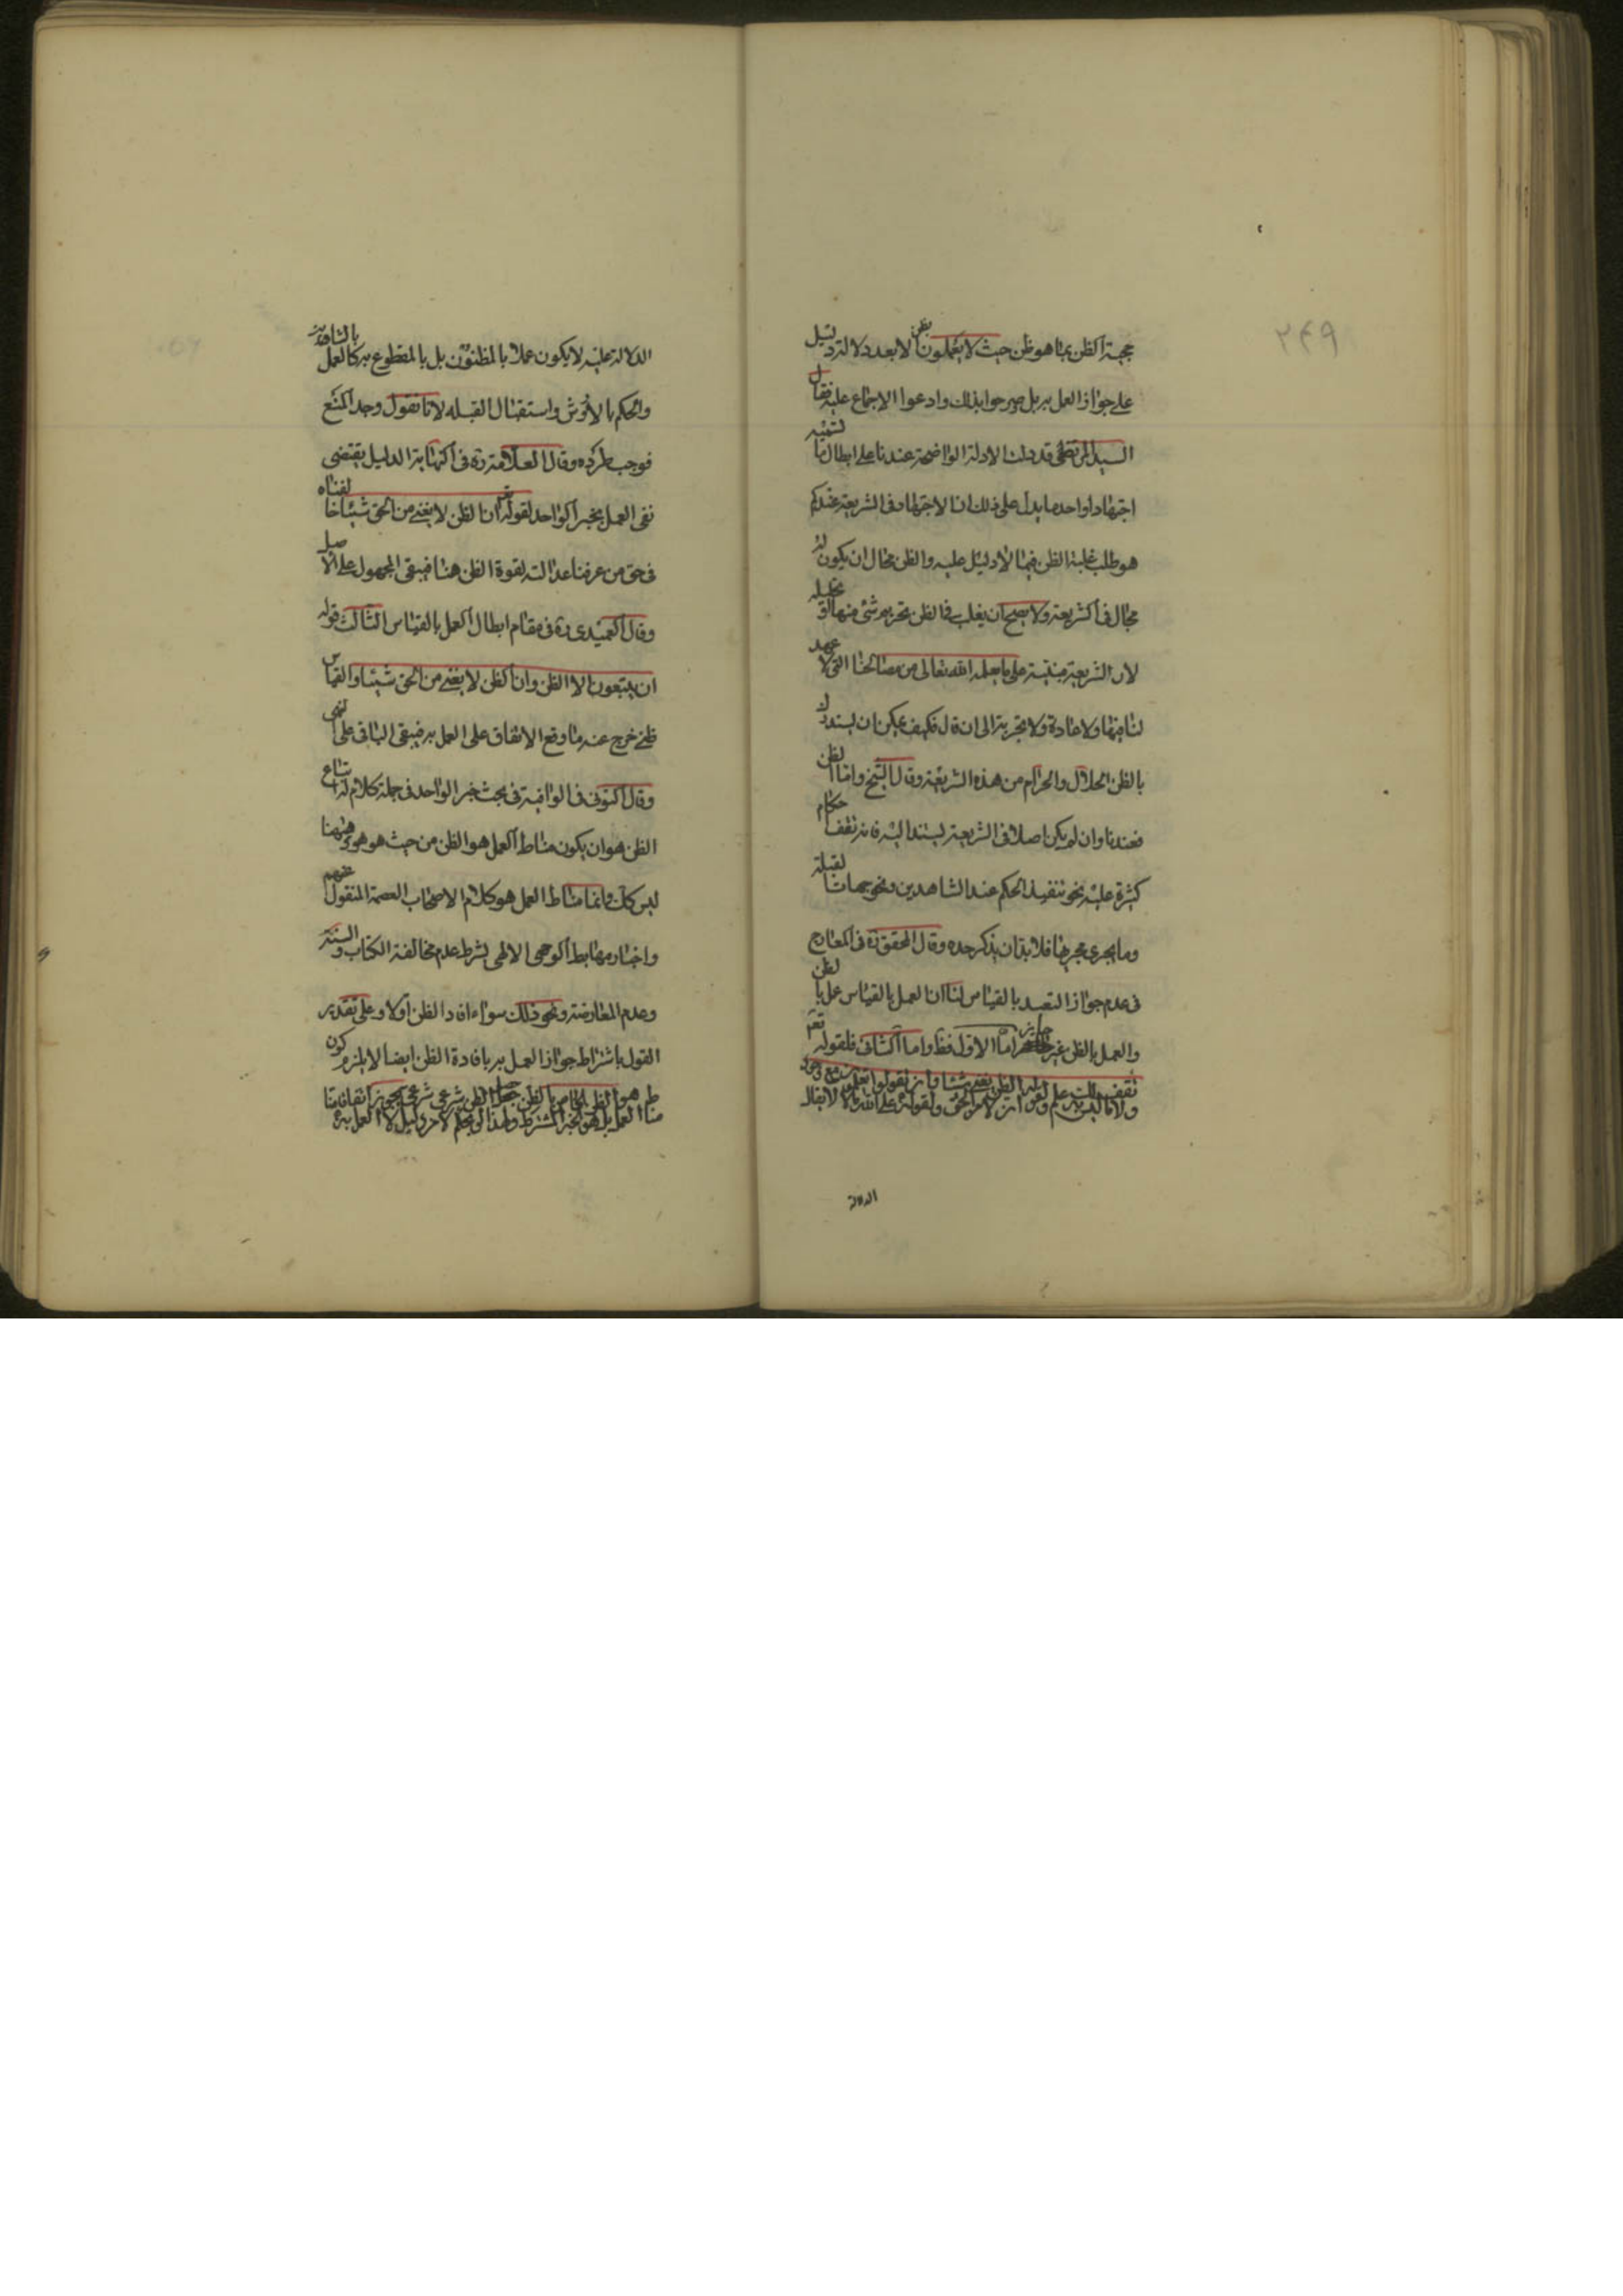 ٢٤٩
حجية الظن بما هو ظن حيث لا يعملون بظن الا بعد دلالة دليل
على جواز العمل به بل صرحوا بذلك وادعوا الاجماع عليه فقال
السيد المرتضى قد دلت الادلة الواضحة عندنا على ابطال ما لتسميه
اجتهادا واحد ما يدل على ذلك ان الاجتهاد في الشريعة عندكم
هو طلب غلبة الظن فيما لا دليل عليه والظن محال ان يكون له
مجال في الشريعة ولا يصح ان يغلب في الظن تحريم شئ منها او تحليله
لان الشريعة مبنية على ما يعلمه الله تعالى من مصالحنا التي لا عهد
لنا فيها ولا عادة ولا تجربة الى ان قال فكيف يمكن ان يستدرك
بالظن الحلال والحرام من هذه الشريعة وقال الشيخ واما الظن
فعندنا وان لم يكن اصلا في الشريعة يستند اليه فانه تقف احكام
كثيرة عليه نحو تنفيذ الحكم عند الشاهدين ونحو جهات القبلة
وما يجري مجراها فلا بد ان يذكر حده وقال المحقق ره في المعارج
في عدم جواز التعبد بالقياس لنا ان العمل بالقياس عمل بالظن
والعمل بالظن غير جايز اما الاول فظ واما الثاني فلقوله تعم
الدلالة
الدلالة عليه لا يكون عملا بالمظنون بل بالمقطوع به كالعمل بالشاهدين
والحكم بالاروش واستقبال القبله لانا نقول وجد المنع
فوجب طرده وقال العلامة ره في النهاية الدليل يقتضي
نفي العمل بخبر الواحد لقوله تعم ان الظن لا يغني من الحق شيئا خالفناه
في حق من عرفنا عدالته لقوة الظن هنا فيبقى المجهول على الاصل
وقال العميدي ره في مقام ابطال العمل بالقياس الثالث قوله
ان يتبعون الا الظن وان الظن لا يغني من الحق شيئا والقياس
ظني خرج عنه ما وقع الاتفاق على العمل به فيبقى الباقي على النهي
وقال التوني في الوافية في بحث خبر الواحد في جملة كلام له اتباع
الظن هو ان يكون مناط العمل هو الظن من حيث هو هو وههنا
ليس كك وانما مناط العمل هو كلام الاصحاب العصمة المنقول عنهم
واخبار مهابط الوحي الالهي بشرط عدم مخالفة الكتاب والسنة
وعدم المعارضة ونحو ذلك سواء افاد الظن اولا وعلى تقدير
القول باشتراط جواز العمل به بافادة الظن ايضا لا يلزم كون